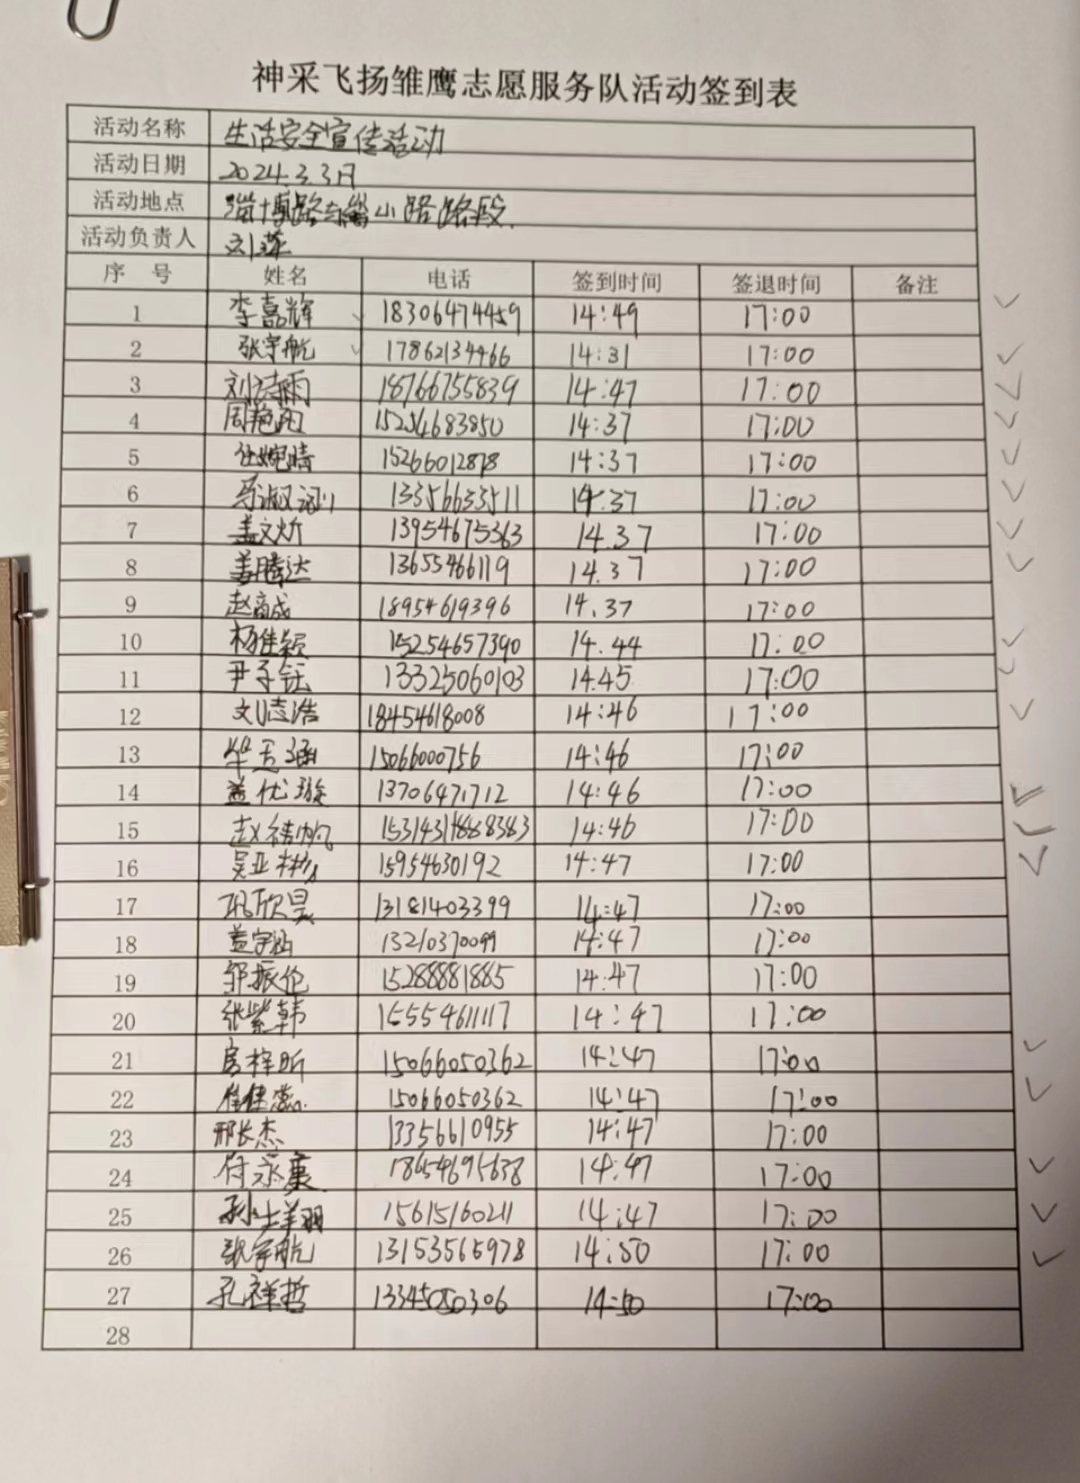 神采飞扬雏鹰志愿服务队活动签到表
活动名称 生活安全宣传活动
活动日期 2024.3.3日
活动地点 淄博路 小路路段
活动负责人 刘萍
序号 姓名 电话 签到时间 签退时间 备注
1 李嘉辉 18306474459 14:49 17:00
2 张宇航 17862134466 14:31 17:00
3 刘诗雨 18766755839 14:47 17:00
4 周艳 15254683850 14:37 17:00
5 任婉晴 15266012878 14:37 17:00
6 13356633511 14.37 17:00
7 盖文炘 13954675363 14.37 17:00
8 盖腾达 13655466119 14.37 17:00
9 赵高成 18954619396 14.37 17:00
10 杨佳颖 15254657390 14.44 17:00
11 尹子钰 13325060103 14.45 17:00
12 刘志浩 18454618008 14:46 17:00
13 15066000756 14:46 17:00
14 盖优璇 13706471712 14:46 17:00
15 赵 14:46 17:00
16 吴亚 15954630192 14:47 17:00
17 巩欣昊 13181403399 14:47 17:00
18 盖宇涵 13210370099 14:47 17:00
19 邹振伦 15288881885 14:47 17:00
20 张紫韩 15554611117 14:47 17:00
21 房梓昕 15066050362 14:47 17:00
22 崔佳蕊 15066050362 14:47 17:00
23 邢长杰 13356610955 14:47 17:00
24 付永康 18654695638 14:47 17:00
25 孙 15615160211 14:47 17:00
26 张宇航 13153565978 14:50 17:00
27 孔祥哲 13345050306 14:50 17:00
28